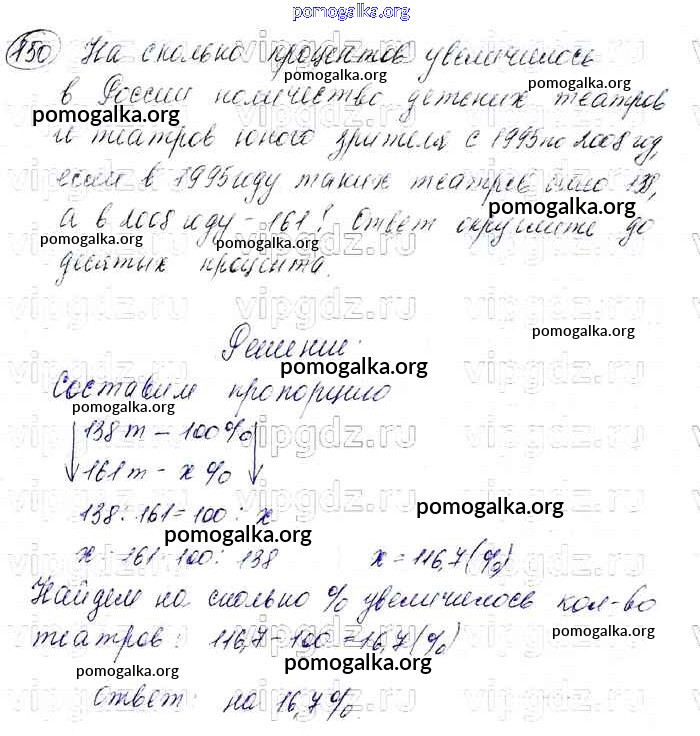 pomogalka.org
150 На сколько процентов увеличилось
pomogalka.org
в России количество детских театров
pomogalka.org
и театров юного зрителя с 1995 по 2008 год,
pomogalka.org
если в 1995 году таких театров было 138,
pomogalka.org
а в 2008 году - 161? Ответ округлите до
pomogalka.org
десятых процента.
vipgdz.ru
Решение:
pomogalka.org
Составим пропорцию
pomogalka.org
pomogalka.org
138 т - 100%
161 т - x %
138 : 161 = 100 : x
pomogalka.org
pomogalka.org
x = 161 · 100 : 138 x = 116,7 (%)
Найдем на сколько % увеличилось кол-во
театров: 116,7 - 100 = 16,7 (%)
pomogalka.org
pomogalka.org
pomogalka.org
Ответ: на 16,7 %.
pomogalka.org